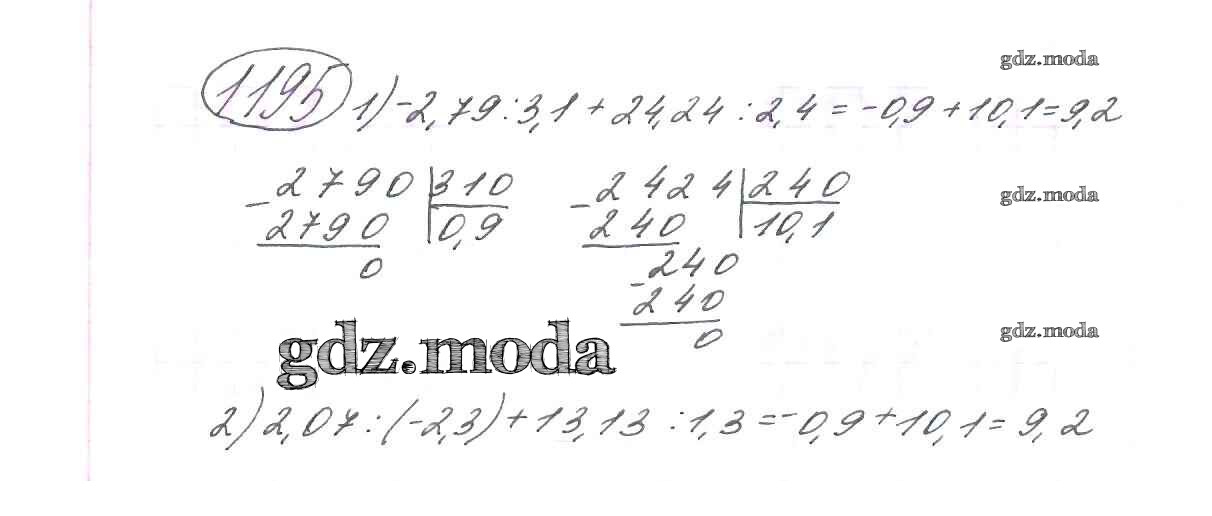 1195 1) -2,79 : 3,1 + 24,24 : 2,4 = -0,9 + 10,1 = 9,2
gdz.moda
- 2790 | 310
2790 | 0,9
0
- 2424 | 240
240 | 10,1
- 240
240
0
gdz.moda
gdz.moda
gdz.moda
2) 2,07 : (-2,3) + 13,13 : 1,3 = -0,9 + 10,1 = 9,2